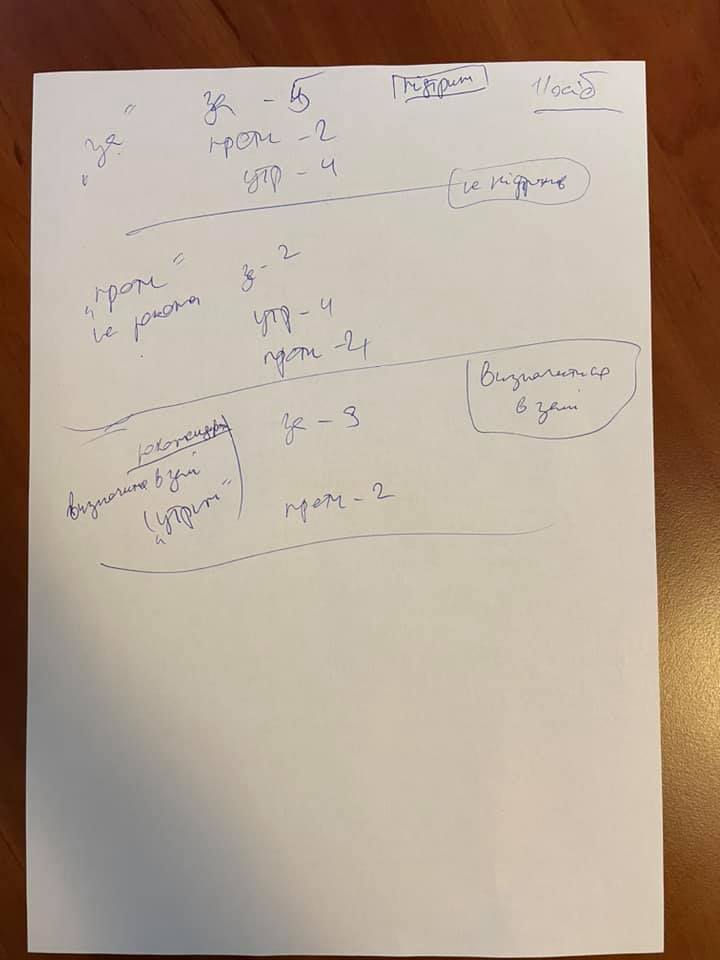 підтрим
11 осіб
"за" за - 5
проти - 2
утр - 4
не підтрим
"проти" за - 2
не рекоме
утр - 4
проти -
визначитися
в залі
рекомендув за - 9
в залі
("утрим" проти - 2